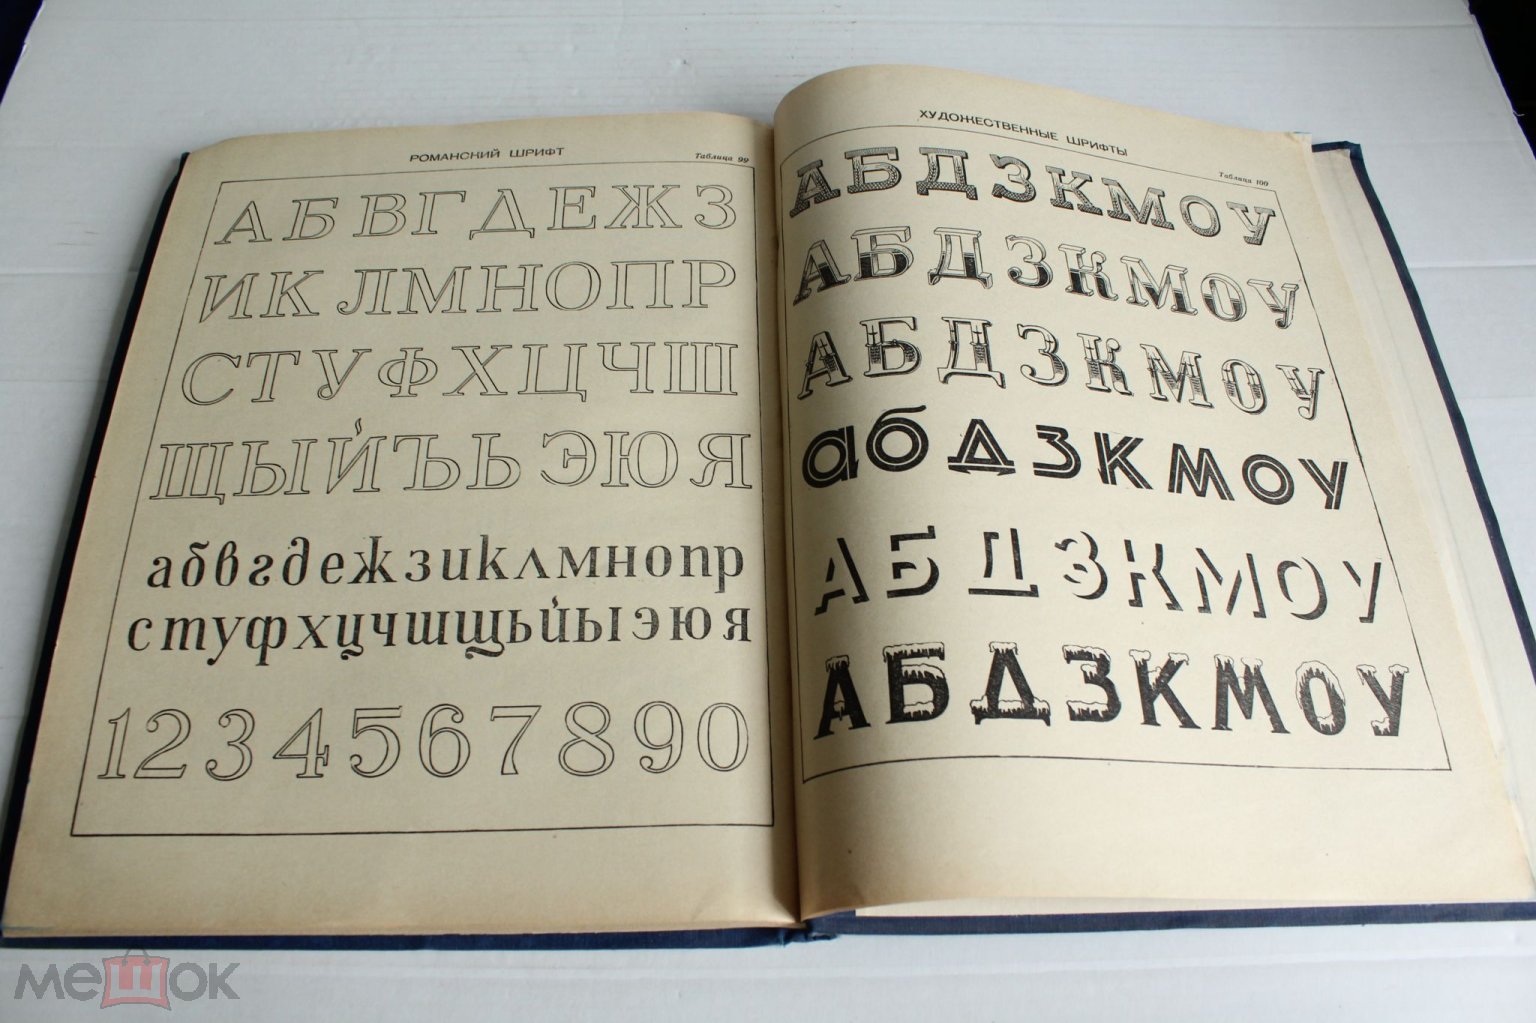 РОМАНСКИЙ ШРИФТ
Таблица 99
АБВГДЕЖЗ
ИКЛМНОПР
СТУФХЦЧШ
ЩЫЙЪЬЭЮЯ
абвгдежзиклмнопр
стуфхцчшщьйыэюя
1234567890
ХУДОЖЕСТВЕННЫЕ ШРИФТЫ
Таблица 100
АБДЗКМОУ
АБДЗКМОУ
АБДЗКМОУ
абдзкмоу
АБДЗКМОУ
АБДЗКМОУ
мешок